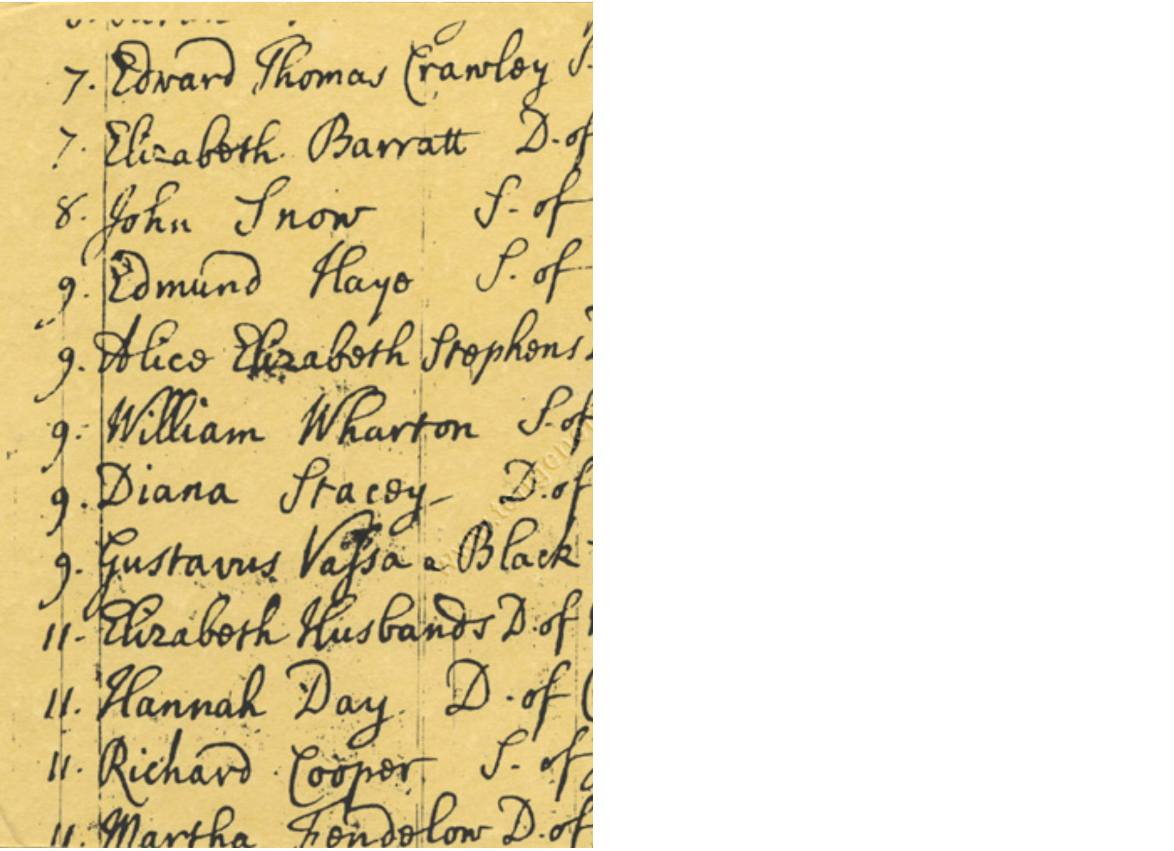 7. Edward Thomas Crawley S.
7. Elizabeth Barratt D. of
8. John Snow S. of
9. Edmund Haye S. of
9. Alice Elizabeth Stephens
9. William Wharton S. of
9. Diana Stacey D. of
9. Gustavus Vassa a Black
11. Elizabeth Husbands D. of
11. Hannah Day D. of
11. Richard Cooper S. of
11. Martha Fendelow D. of